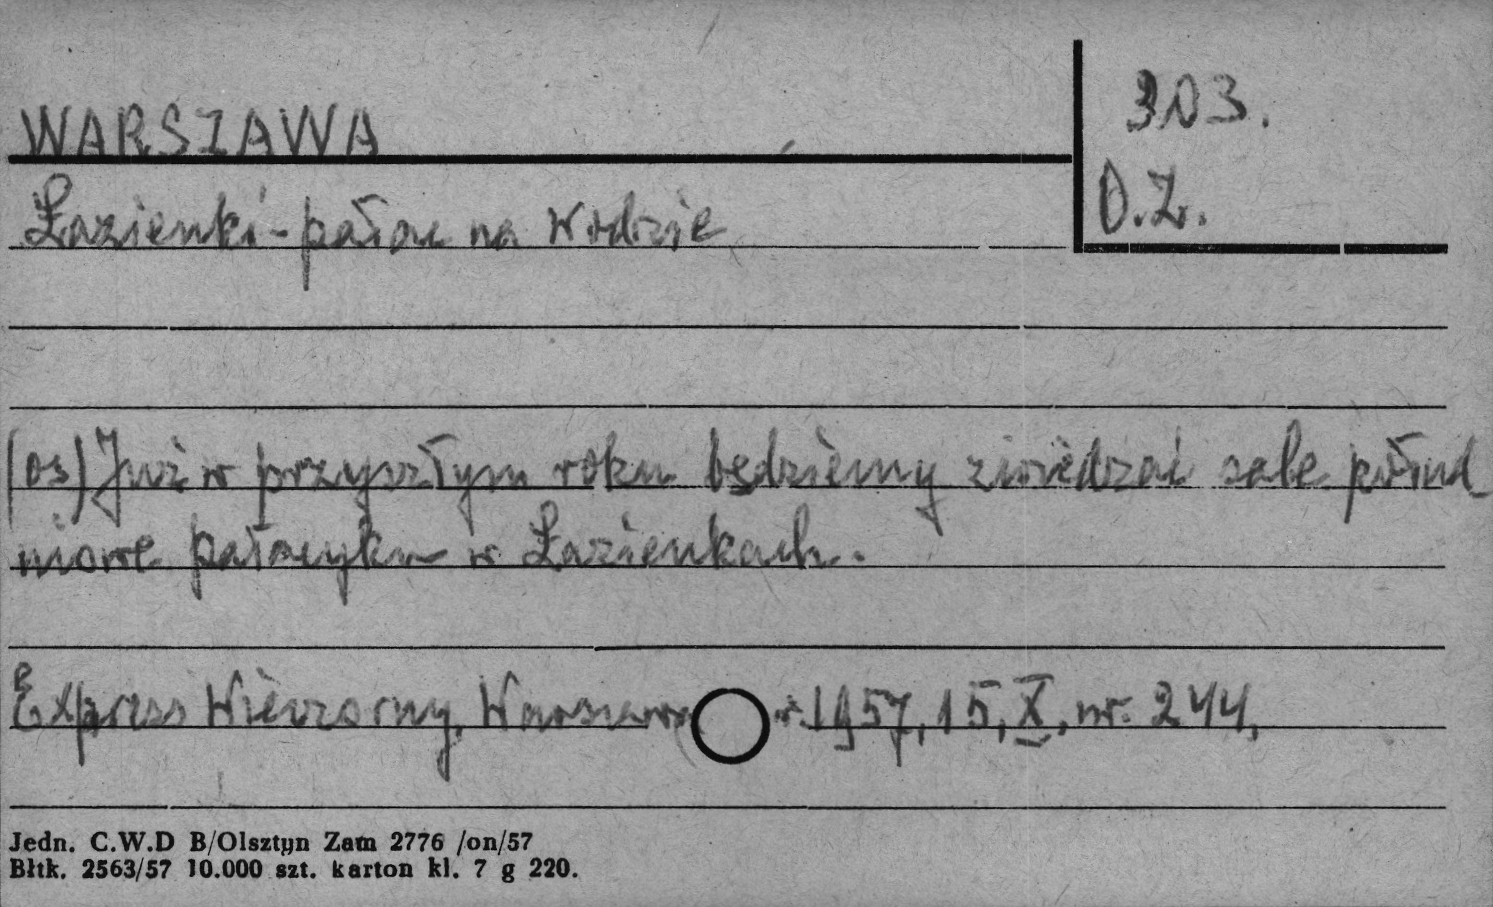 WARSZAWA
303.
Łazienki - pałac na wodzie
D.Z.
(os) Już w przyszłym roku będziemy zwiedzać sale połud_
niowe pałacyku w Łazienkach.
Express Wieczorny, Warszawa r. 1957, 15, X, nr. 244,
Jedn. C.W.D B/Olsztyn Zam 2776 /on/57
Błtk. 2563/57 10.000 szt. karton kl. 7 g 220.